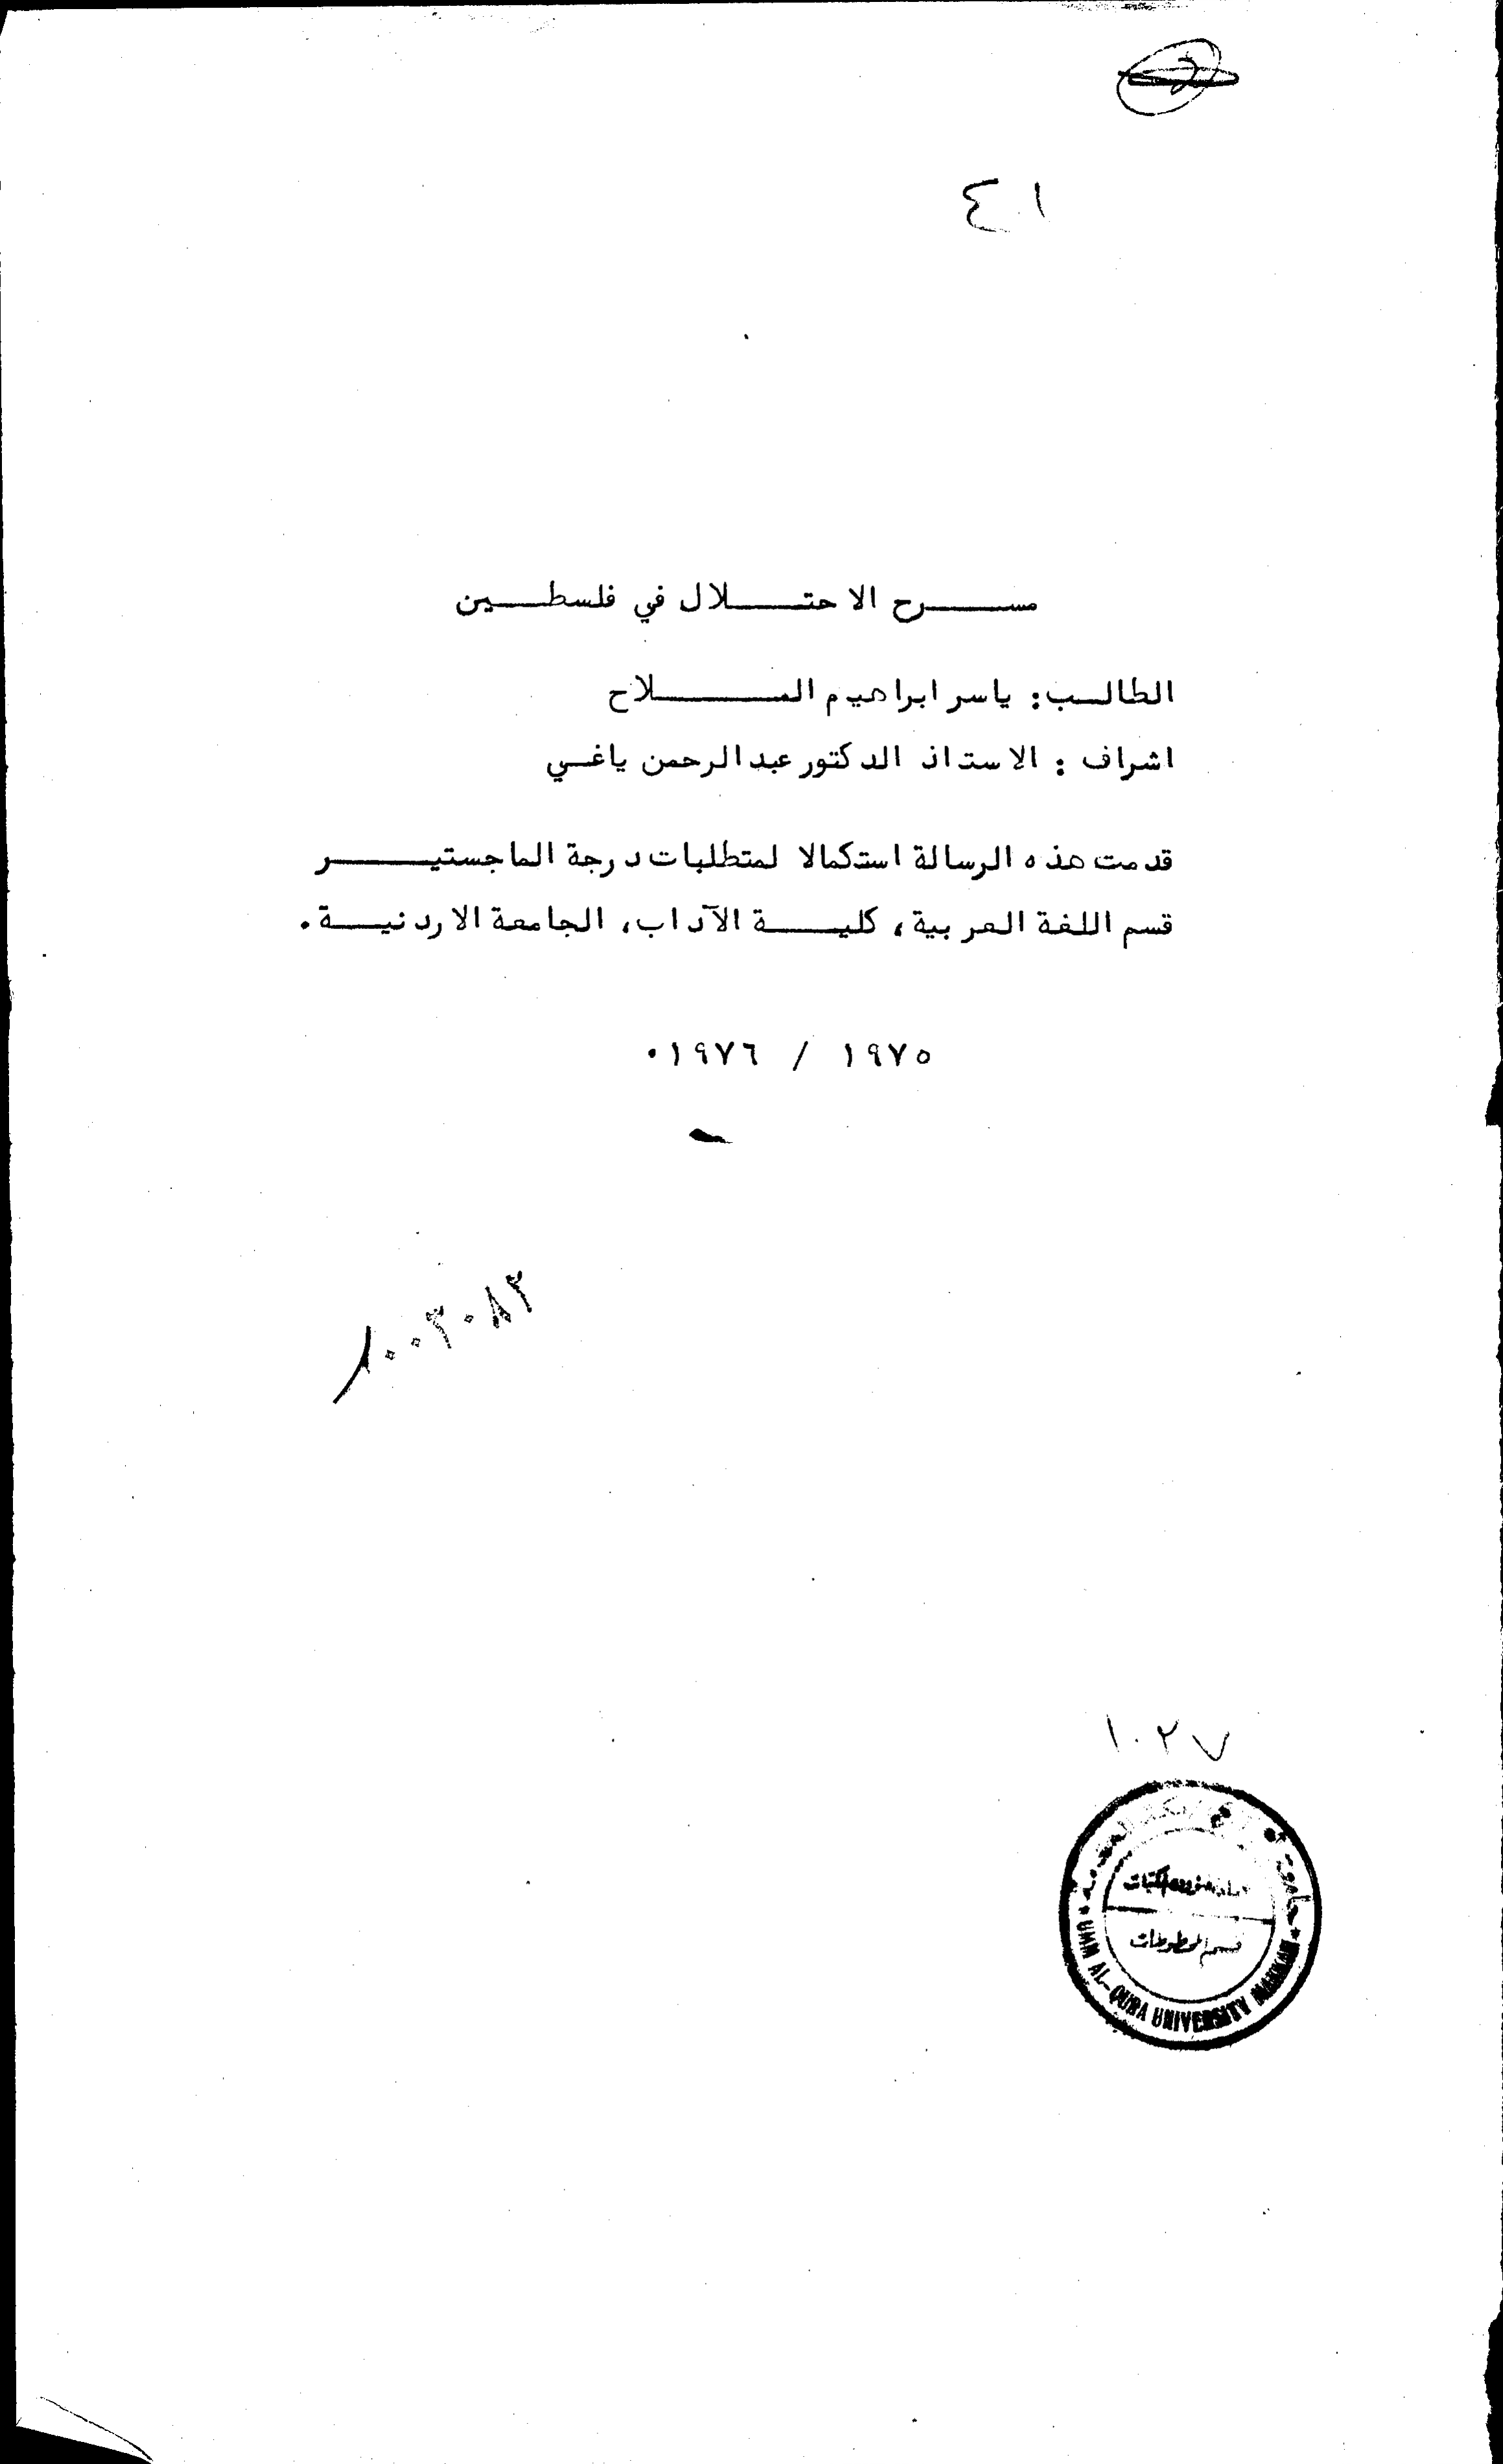 ٤١
مسرح الاحتلال في فلسطين
الطالب: ياسر ابراهيم الملاح
اشراف : الاستاذ الدكتور عبدالرحمن ياغي
قدمت هذه الرسالة استكمالا لمتطلبات درجة الماجستير
قسم اللغة العربية، كلية الآداب، الجامعة الاردنية.
١٩٧٥ / ١٩٧٦.
١٠٠٣٠٨٢
١٠٢٧
جامعة أم القرى
المكتبات
قسم المخطوطات
UMM AL-QURA UNIVERSITY MAKKAH